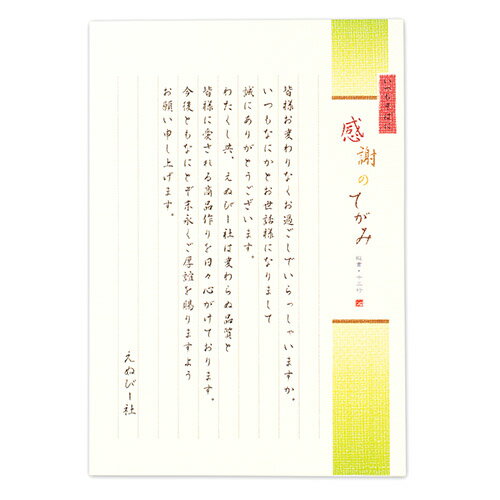 いつもまごころ
感謝のてがみ
縦書・十二行
皆様お変わりなくお過ごしでいらっしゃいますか。
いつもなにかとお世話様になりまして
誠にありがとうございます。
わたくし共、えぬびー社は変わらぬ品質と
皆様に愛される商品作りを日々心がけております。
今後ともなにとぞ末永くご厚誼を賜りますよう
お願い申し上げます。
えぬびー社